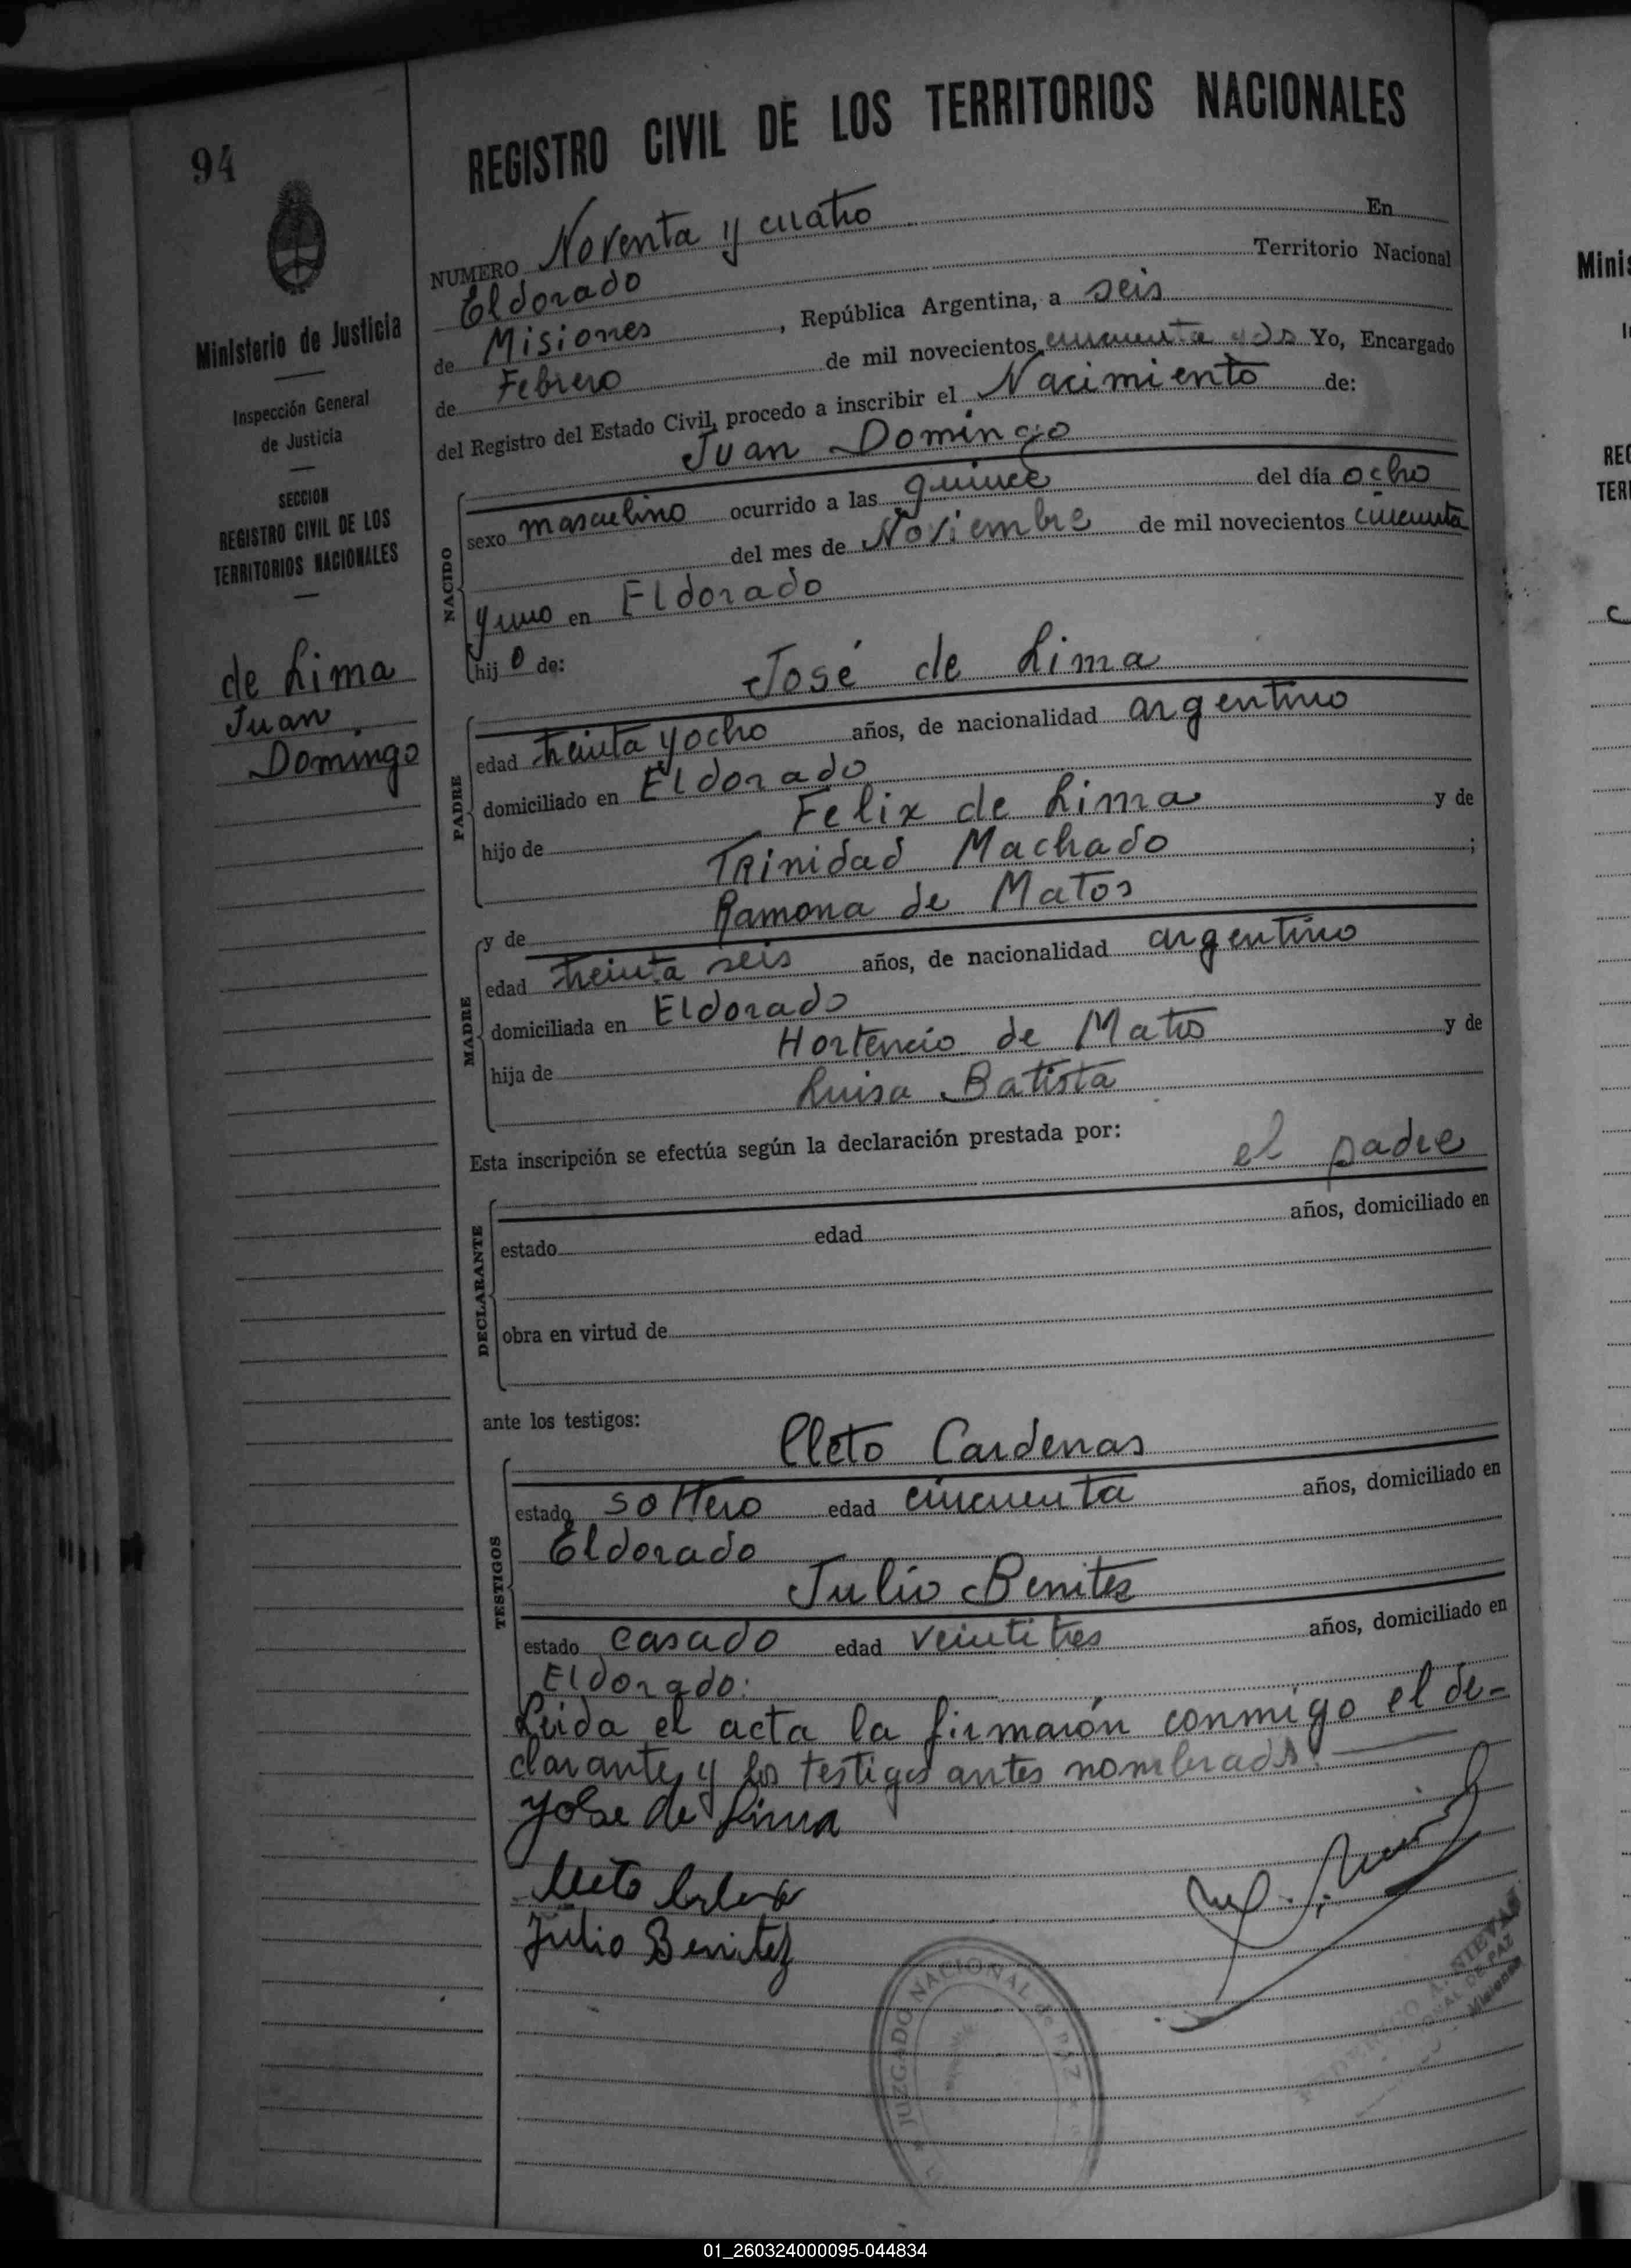 94
Ministerio de Justicia
Inspección General
de Justicia
SECCION
REGISTRO CIVIL DE LOS
TERRITORIOS NACIONALES
de Lima
Juan
Domingo
REGISTRO CIVIL DE LOS TERRITORIOS NACIONALES
NUMERO Noventa y cuatro En
Eldorado Territorio Nacional
de Misiones, República Argentina, a seis
de Febrero de mil novecientos cincuenta y dos Yo, Encargado
del Registro del Estado Civil, procedo a inscribir el Nacimiento de:
Juan Domingo
NACIDO
sexo masculino ocurrido a las quince del día ocho
del mes de Noviembre de mil novecientos cincuenta
y uno en Eldorado
hijo de:
José de Lima
PADRE
edad treinta y ocho años, de nacionalidad argentino
domiciliado en Eldorado
hijo de Felix de Lima y de
Trinidad Machado ;
y de Ramona de Matos
MADRE
edad treinta seis años, de nacionalidad argentino
domiciliada en Eldorado
hija de Hortencio de Matos y de
Luisa Batista
Esta inscripción se efectúa según la declaración prestada por:
el padre
DECLARANTE
estado edad años, domiciliado en
obra en virtud de
ante los testigos:
Cleto Cardenas
TESTIGOS
estado soltero edad cincuenta años, domiciliado en
Eldorado
Julio Benitez
estado casado edad veintitres años, domiciliado en
Eldorado:
Leida el acta la firmarón conmigo el de-
clarante y los testigos antes nombrados.
Jose de Lima
Cleto
Julio Benitez
JUZGADO NACIONAL de PAZ
NIEVAS
DE PAZ
Misiones
Minis
REG
TERR
01_260324000095-044834